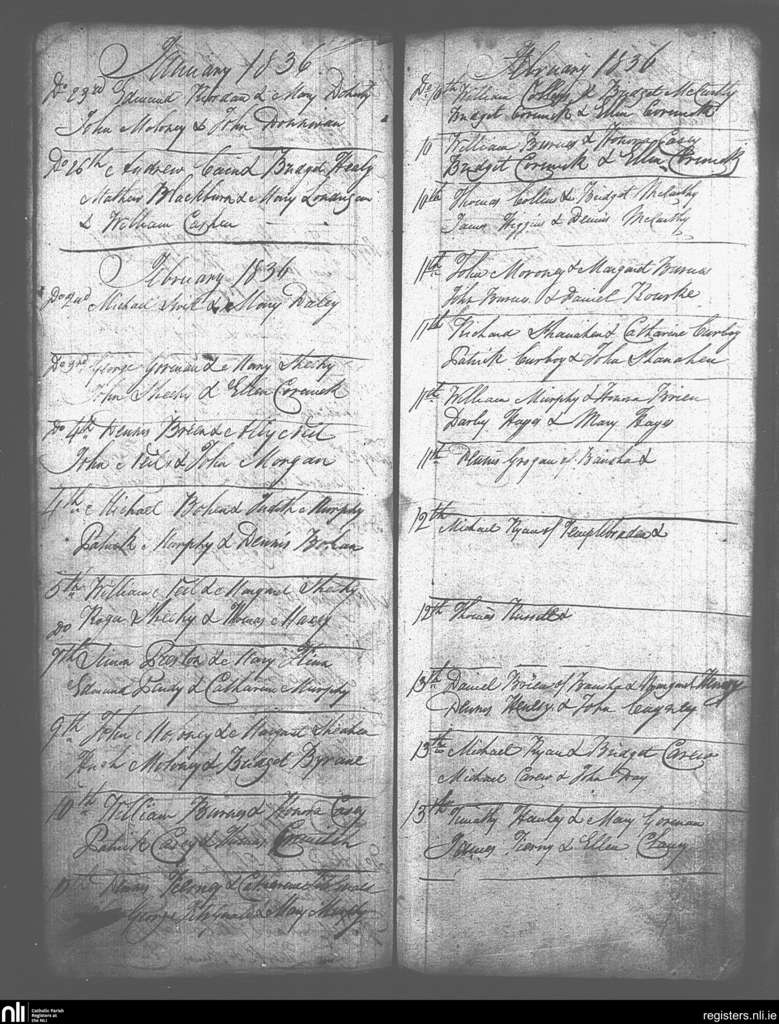 January 1836
Do 23rd Edmund Riordan & Mary Doherty
John Moloney & John Donnovan
Do 26th Andrew Cain & Bridget Healy
Mathew Blackburn & Mary Londrigan
& William Casheen
February 1836
Do 2nd Michael & Mary Daley
Do 3rd George Gorman & Mary Sheehy
John Sheehy & Ellen Cormick
Do 4th Dennis Brien & Neil
John Neil & John Morgan
4th Michael Bohan & Judith Murphy
Patrick Murphy & Dennis Bohan
5th William Neil & Margaret Sheehy
Do Roger Sheehy & Thomas
7th Simon & Mary
Edmund & Catharine Murphy
9th John Moroney & Margaret Sheahan
Hugh Moloney & Bridget Byrane
10th William Burns & Honora Casey
Patrick Casey & Thomas
Dennis & Catharine
George & Mary
February 1836
Do 10th William & Bridget McCarthy
Bridget Cormick & Ellen Cormick
10 William Burns & Honora Casey
Bridget Cormick & Ellen Cormick
10th Thomas Collins & Bridget McCarthy
James Higgins & Dennis McCarthy
11th John Moroney & Margaret Burns
John Burns & Daniel Rourke
11th Richard Shanahen & Catharine Curboy
Patrick Curboy & John Shanahen
11th William Murphy & Honora Brien
Darby Hayes & Mary Hayes
11th Dennis Grogan of Bansha &
12th Michael Ryan of Templebraden &
12th Thomas Russell &
13th Daniel Brien of Bansha & Margaret
Dennis Henley & John Cagney
13th Michael Ryan & Bridget Carew
Michael Carew & John Day
13th Timothy Hanley & Mary Gorman
James Tierny & Ellen
nli
Catholic Parish
Registers at
the NLI
registers.nli.ie